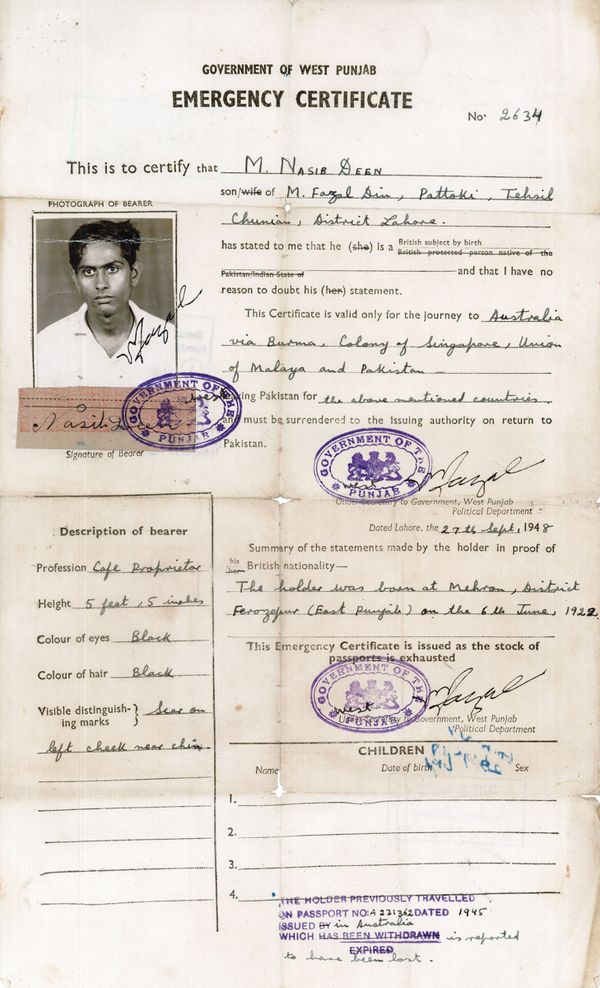 GOVERNMENT OF WEST PUNJAB
EMERGENCY CERTIFICATE
No. 2634
This is to certify that M. NASIB DEEN
son/wife of M. Fazal Din, Pattoki, Tehsil
Chunian, District Lahore.
PHOTOGRAPH OF BEARER
has stated to me that he (she) is a British subject by birth
British protected person native of the
Pakistan/Indian State of and that I have no
reason to doubt his (her) statement.
This Certificate is valid only for the journey to Australia
via Burma, Colony of Singapore, Union
of Malaya and Pakistan
Pakistan for the above mentioned countries
and must be surrendered to the Issuing authority on return to
Pakistan.
Nasib Deen
GOVERNMENT OF THE
west
PUNJAB
Signature of Bearer
GOVERNMENT OF THE
west
PUNJAB
Under Secretary to Government, West Punjab
Political Department
Dated Lahore, the 27th Sept, 1948
Description of bearer
Profession Cafe Proprietor
Height 5 feet, 5 inches
Colour of eyes Black
Colour of hair Black
Visible distinguish-
ing marks } Scar on
left cheek near chin
Summary of the statements made by the holder in proof of
his
her British nationality—
The holder was born at Mehron, District
Ferozepur (East Punjab) on the 6th June, 1922.
This Emergency Certificate is issued as the stock of
passports is exhausted
GOVERNMENT OF THE
west
PUNJAB
Under Secretary to Government, West Punjab
Political Department
CHILDREN
Name Date of birth Sex
1.
2.
3.
4.
THE HOLDER PREVIOUSLY TRAVELLED
ON PASSPORT NO: A 231362 DATED 1945
ISSUED BY in Australia
WHICH HAS BEEN WITHDRAWN is reported
EXPIRED
to have been lost.